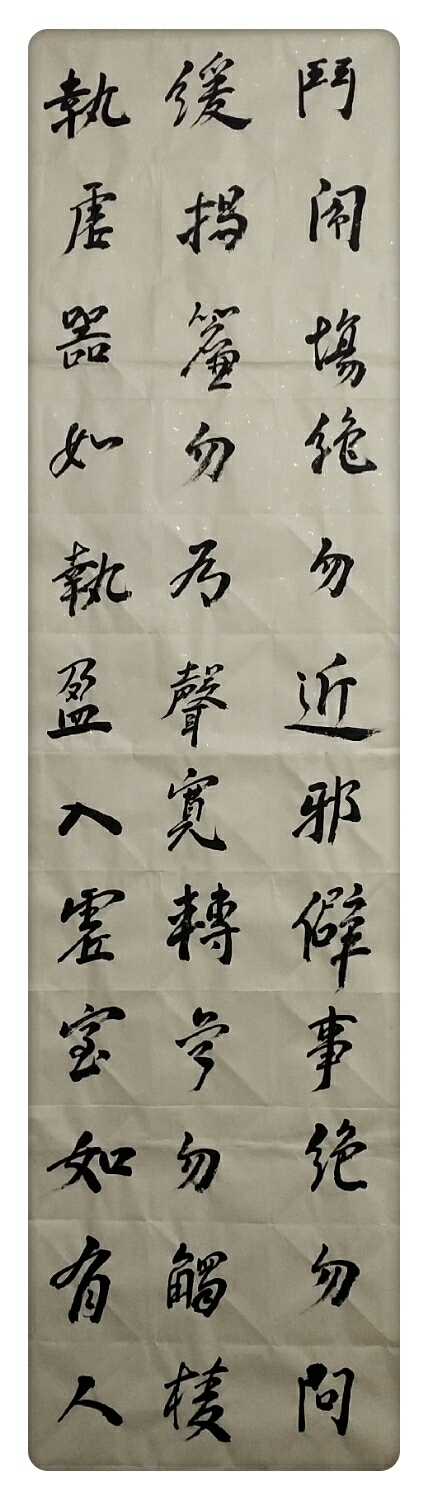 鬥鬧場絕勿近邪僻事絕勿問
緩揭簾勿有聲寬轉彎勿觸棱
執虛器如執盈入虛室如有人